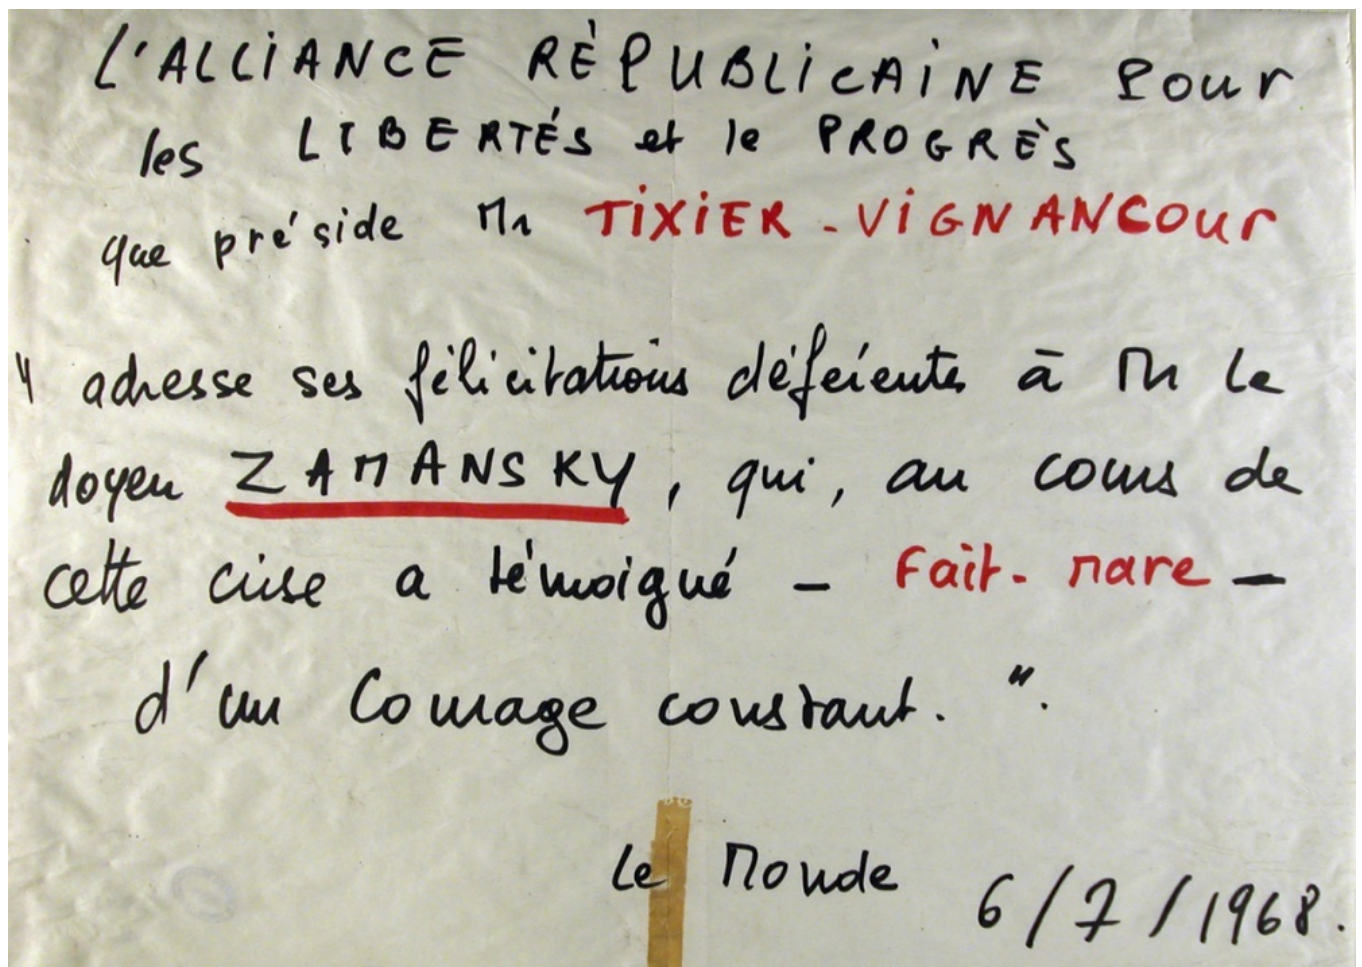 L'ALLIANCE RÉPUBLICAINE Pour
les LIBERTÉS et le PROGRÈS
que préside Mr TIXIER - VIGNANCOUR
" adresse ses félicitations déférentes à Mr le
doyen ZAMANSKY, qui, au cours de
cette crise a témoigné - Fait - rare -
d'un Courage constant. ".
Le Monde 6/7/1968.